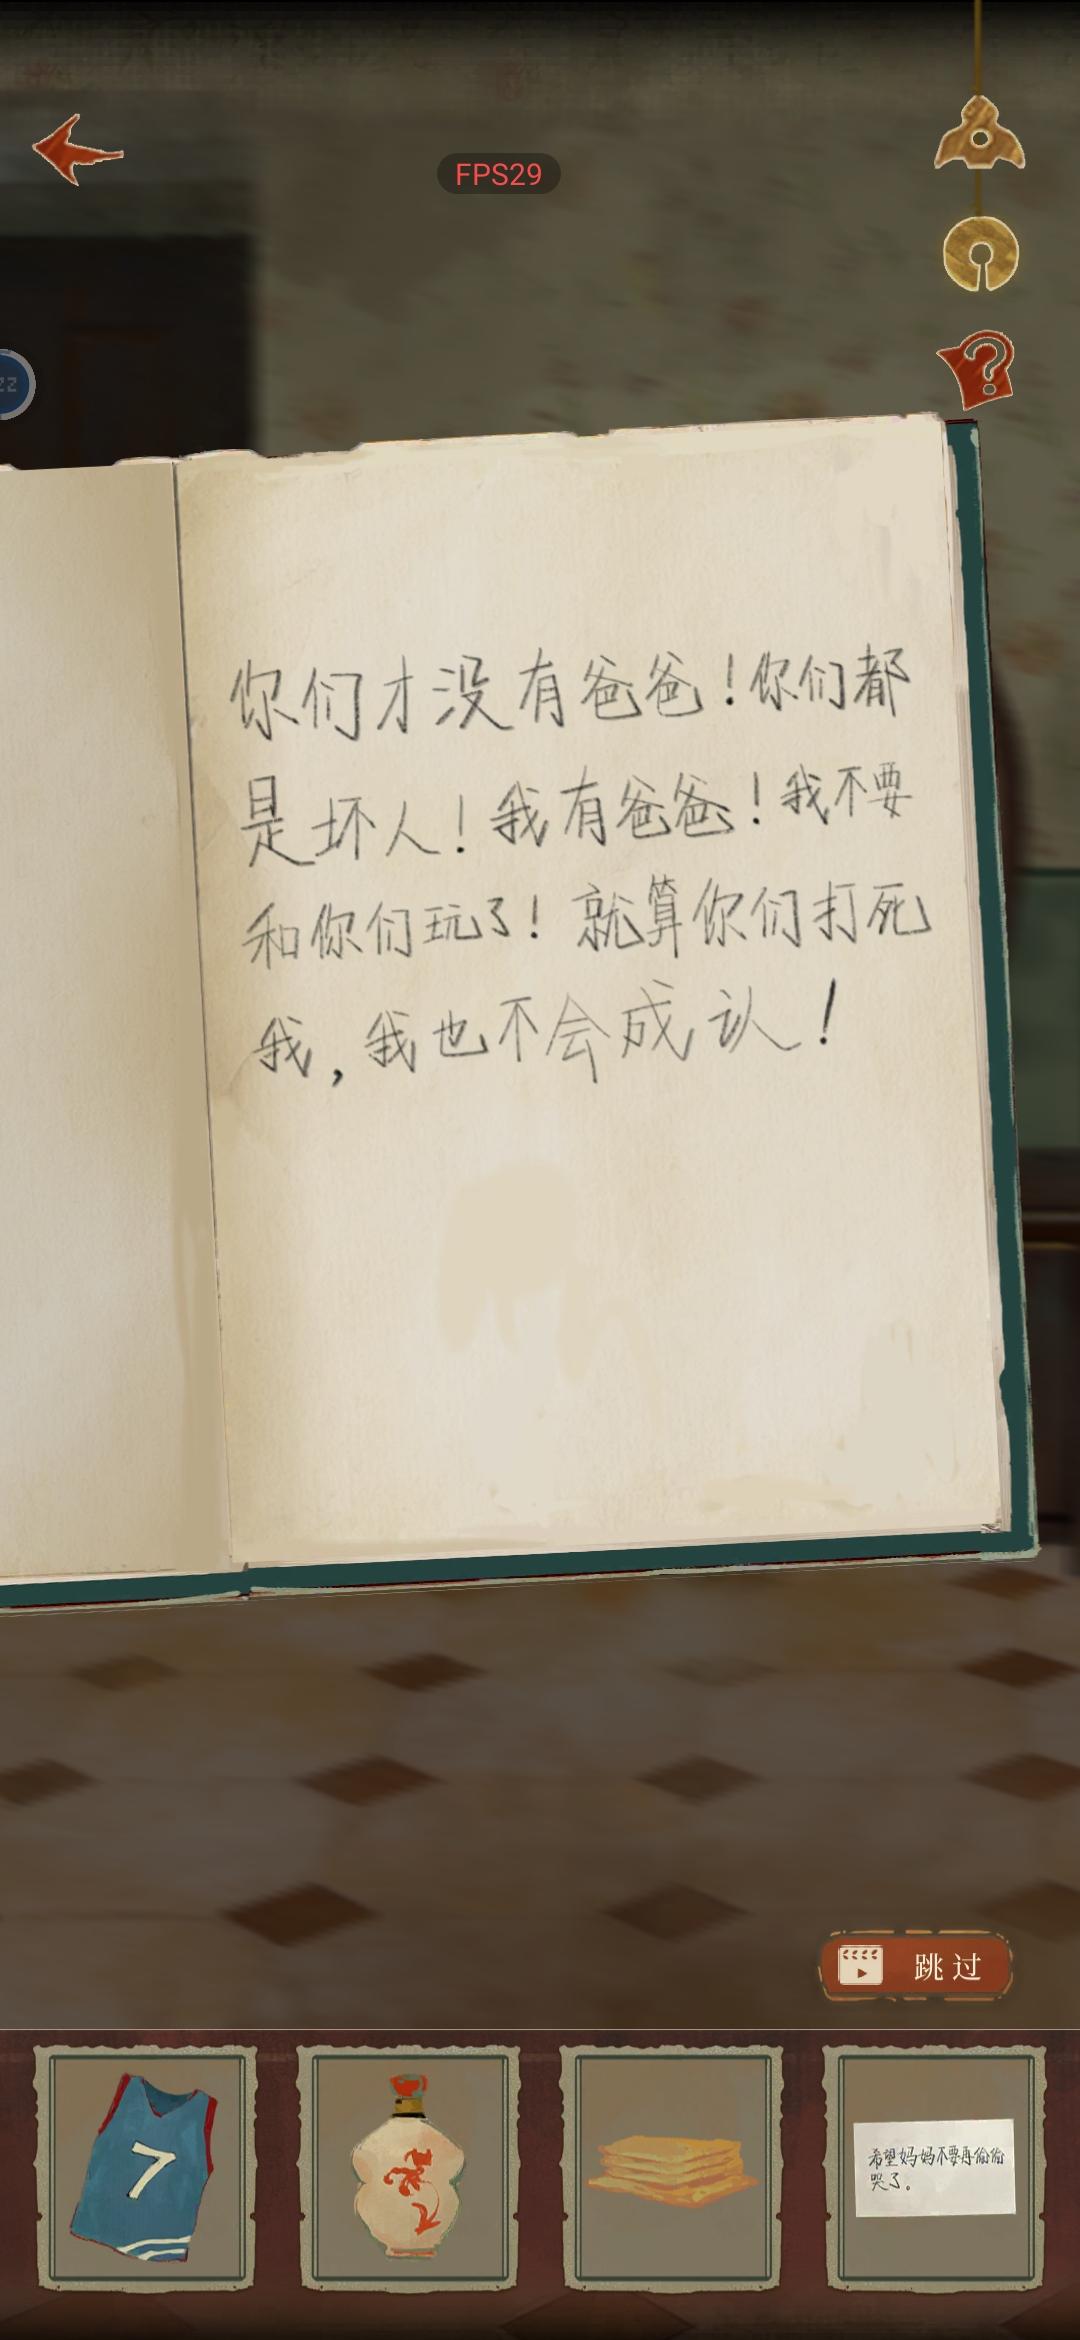 FPS29
zz
你们才没有爸爸！你们都
是坏人！我有爸爸！我不要
和你们玩了！就算你们打死
我，我也不会成认！
跳过
7
希望妈妈不要再偷偷
哭了。